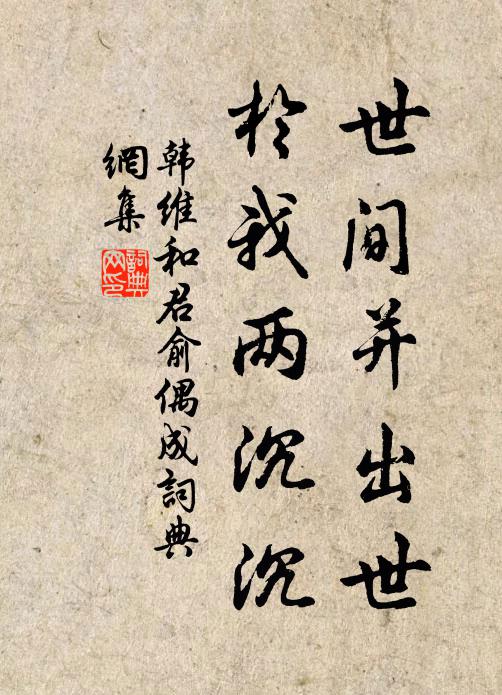 世间并出世
於我两沉沉
韩维和君俞偶成詞典
網集
詞典
网印